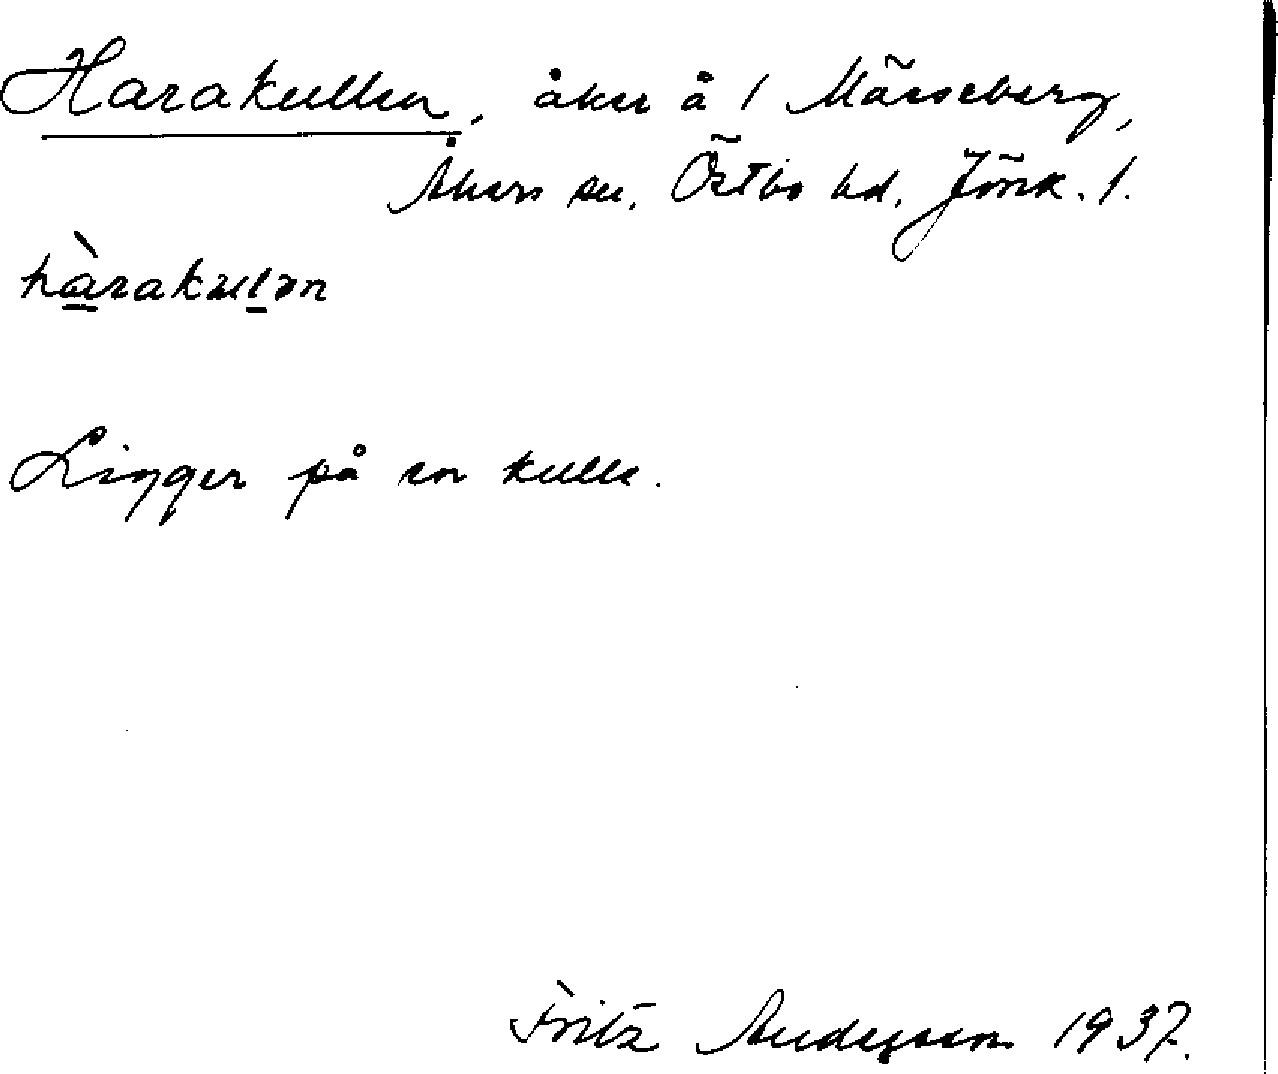 Harakullen, åker å 1 Mässeberg,
Åkers sn, Östbo hd, Jönk. l.
hàrakulən
Ligger på en kulle.
Fritz Andersson 1937.